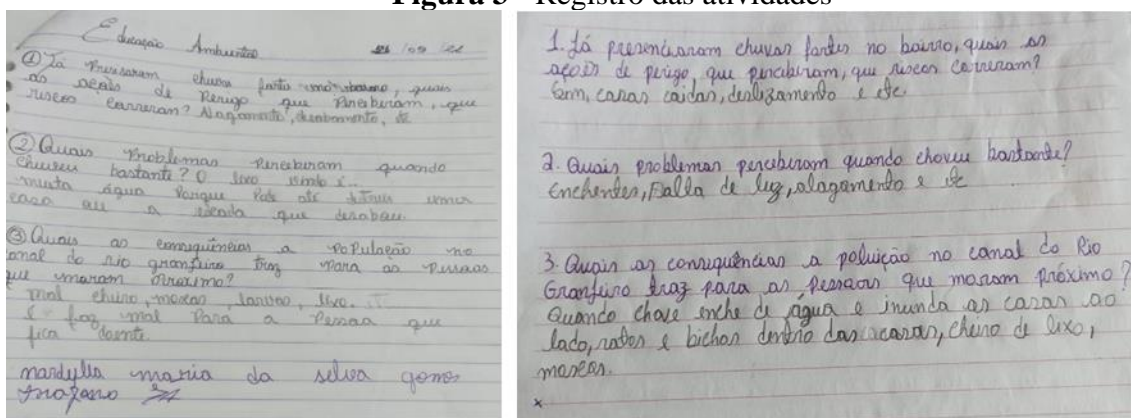 Figura 3 - Registro das atividades
Educação Ambiental
① Já
chuvas
de Perigo que Perceberam, que
riscos correram? Alagamento, desabamento,
② Quais Problemas Perceberam quando
Choveu bastante? O lixo
muita água Porque Pode até destruir uma
casa
a que desabau.
③ Quais as consequências a PoPulação no
canal do rio granjeiro traz Para as Pessoas
que moram Próximo?
mal cheiro, moscas, larvas, lixo.
E faz mal Para a Pessoa que
fica doente.
maria da selva gomes
1. Já presenciaram chuvas fortes no bairro, quais as
ações de perigo, que perceberam, que riscos correram?
Sim, casas caídas, deslizamento e etc.
2. Quais problemas perceberam quando choveu bastante?
Enchentes, Falla de luz, alagamento e etc
3. Quais as consequências a poluição no canal do Rio
Granjeiro traz para as pessoas que moram próximo?
Quando chove enche de água e inunda as casas ao
lado, ratos e bichos dentro das casas, cheiro de lixo,
moscas.